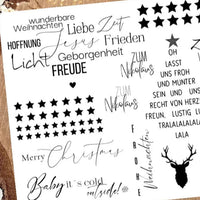 wunderbare
Weihnachten
Liebe Zeit
HOFFNUNG Jesus Frieden
Licht Geborgenheit
FREUDE
ZUM
Nikolaus
ZUM
Nikolaus
OH
LASST
UNS FROH
UND MUNTER
SEIN UND UNS
RECHT VON HERZEN
FREUN. LUSTIG
TRALALALALA
LALA
FROHE
Weihnachten
Merry Christmas
Baby it's cold
outside!